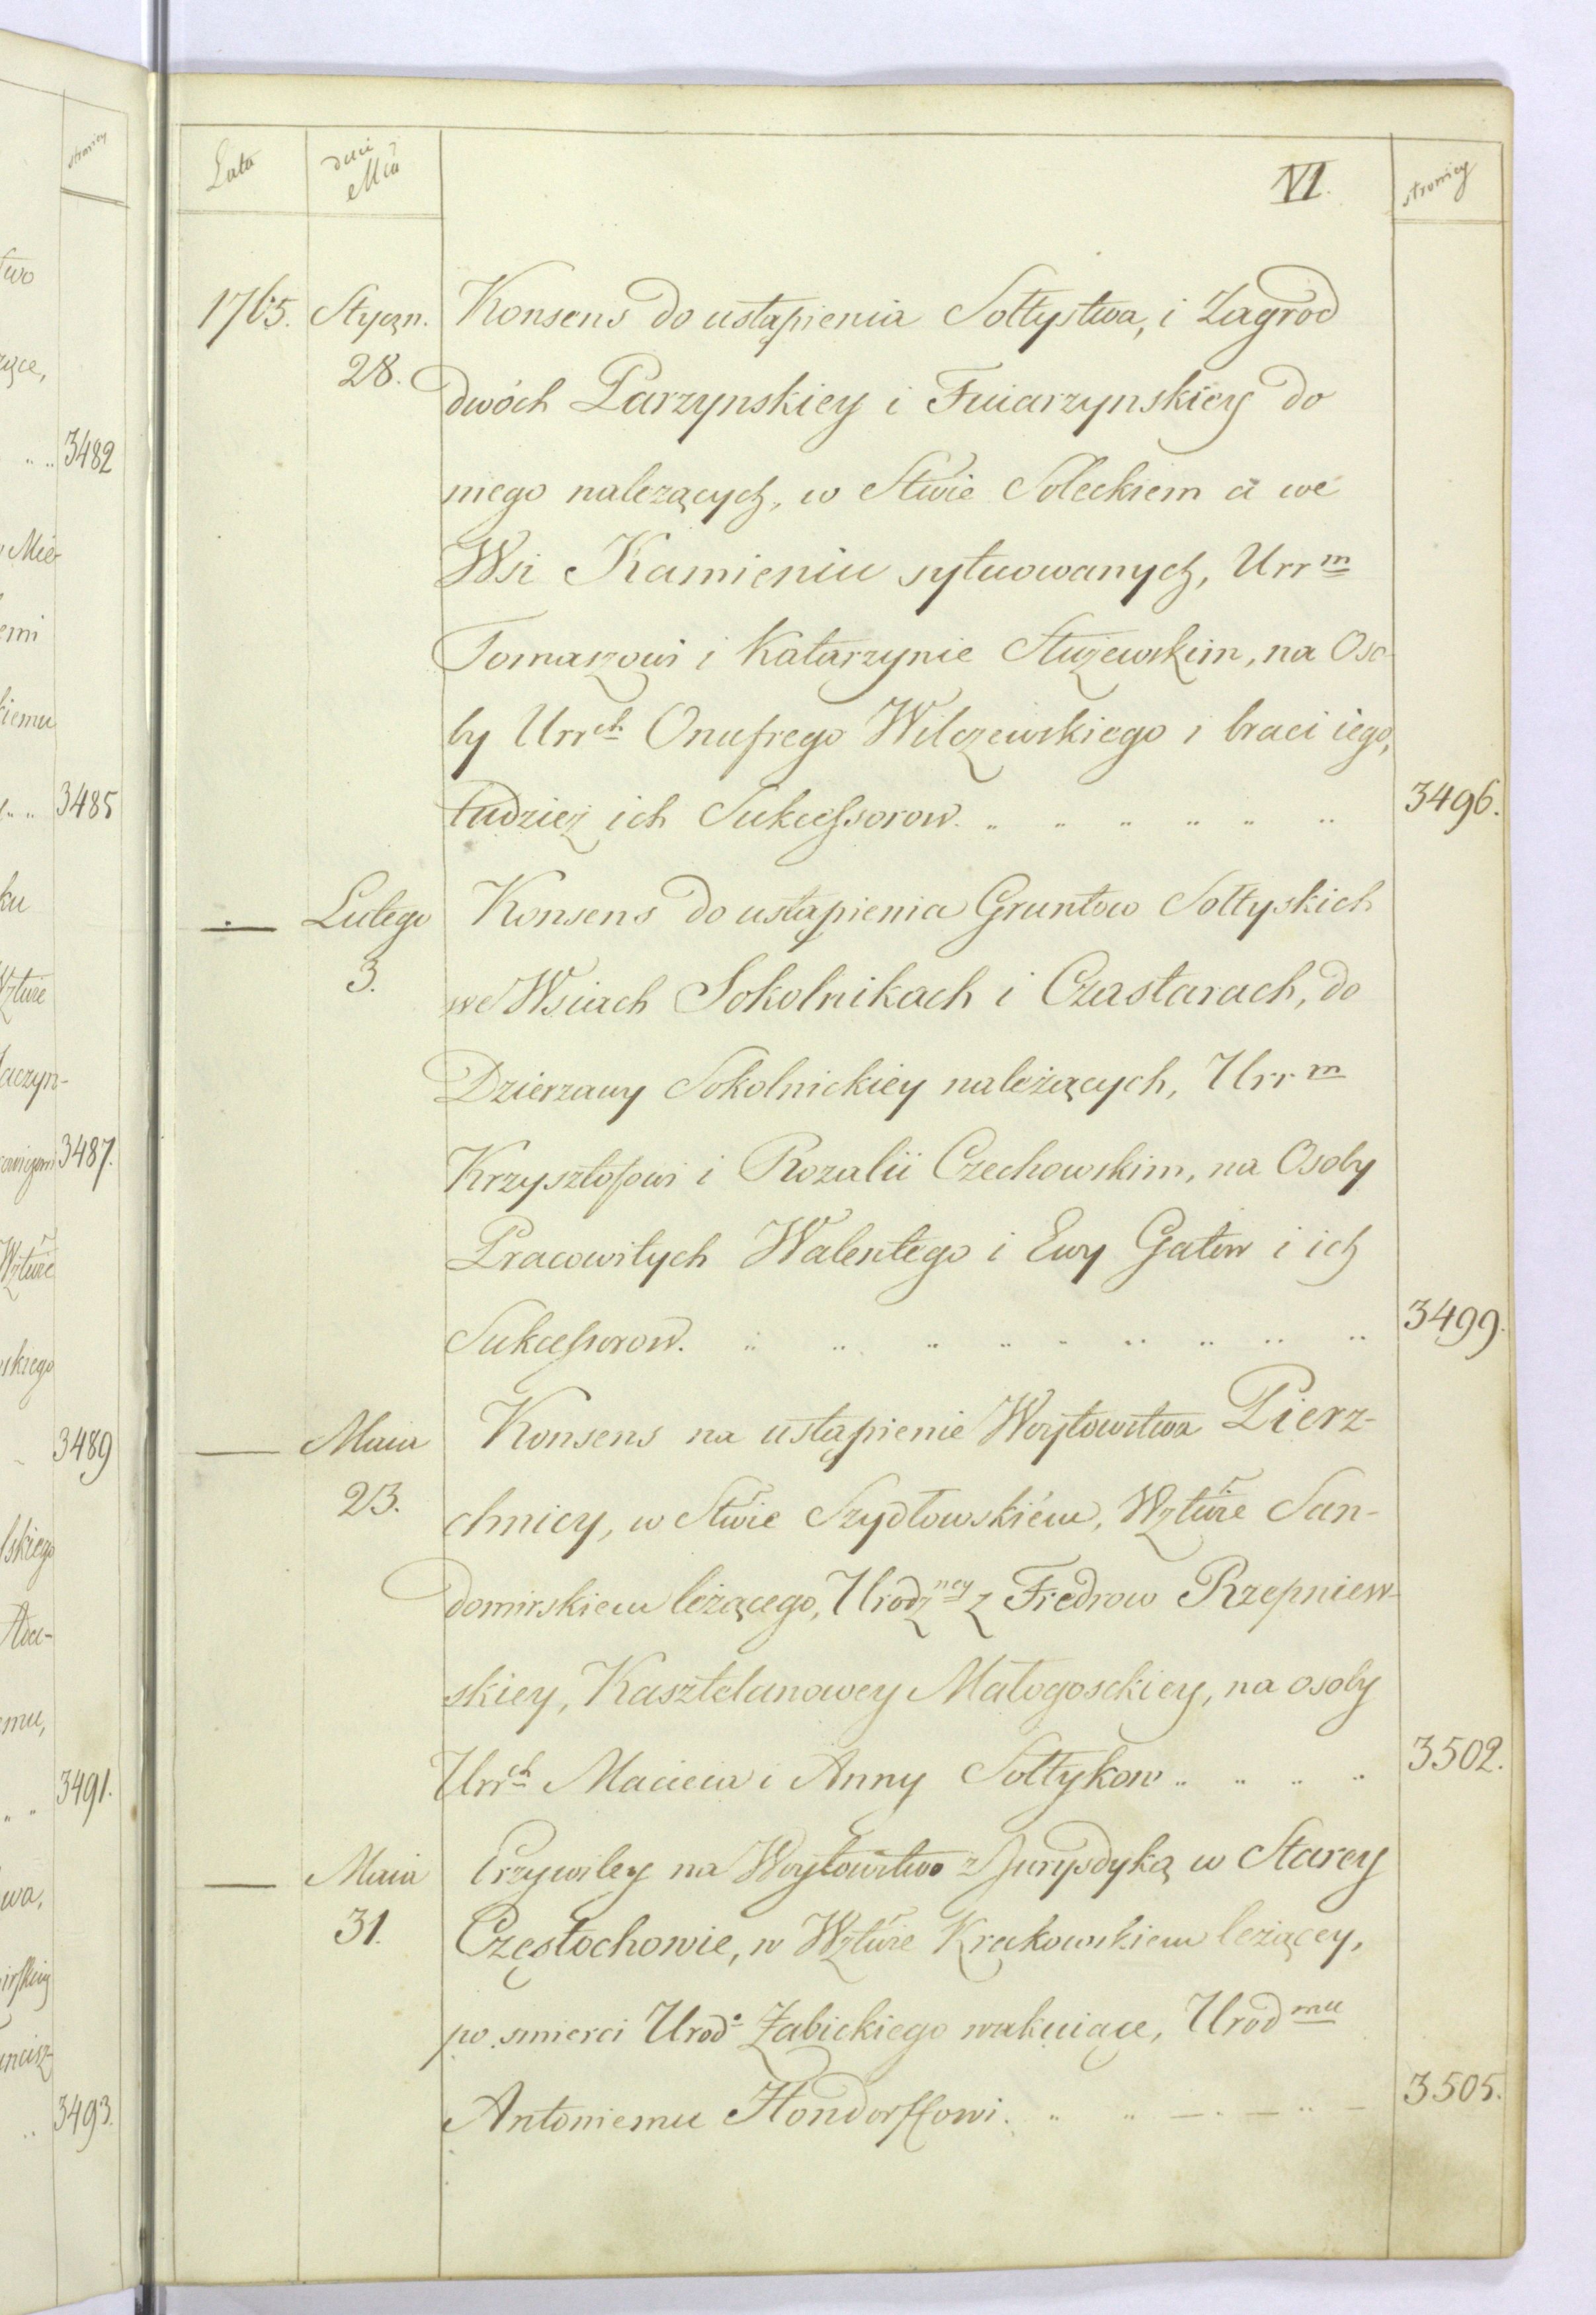 stronicy
two
rzące,
3482
Mie-
emi
kiemu
3485
ku
Wztwie
aczyn-
3487.
Wztwie
skiego
3489
skiego
emu,
3491.
wa,
ncisz-
3493.
Lata dnie Mca VI. stronicy
1765. Styczn. Konsens do ustąpienia Sołtystwa, i Zagrod
28. dwóch Parzynskiey i Fuiarzynskiey do
niego nalezących, w Stwie Soleckiem a we
Wsi Kamieniu sytuowanych, Urrm
Tomaszowi i Katarzynie Służewskim, na Oso-
by Urrch Onufrego Wilczewskiego i braci iego,
tudzież ich Sukcessorow. 3496.
— Lutego Konsens do ustąpienia Gruntow Sołtyskich
3. we Wsiach Sokolnikach i Czastarach, do
Dzierzawy Sokolnickiey należących, Urrm
Krzysztofowi i Rozalii Czechowskim, na Osoby
Pracowitych Walentego i Ewy Gałow i ich
Sukcessorow. 3499.
— Maia Konsens na ustąpienie Woytowstwa Pierz-
23. chnicy, w Stwie Szydłowskiém, Wztwie San-
domirskiem leżącego, Urodzney z Fredrow Rzepniew-
skiey, Kasztelanowey Małogosckiey, na osoby
Urrch Macieia i Anny Sołtykow 3502.
— Maia Przywiley na Woytowstwo z Jurysdyką w Starey
31. Częstochowie, w Wztwie Krakowskiem leżącey,
po smierci Urodo Żabickiego wakuiące, Urodmu
Antoniemu Hondorffowi. 3505.